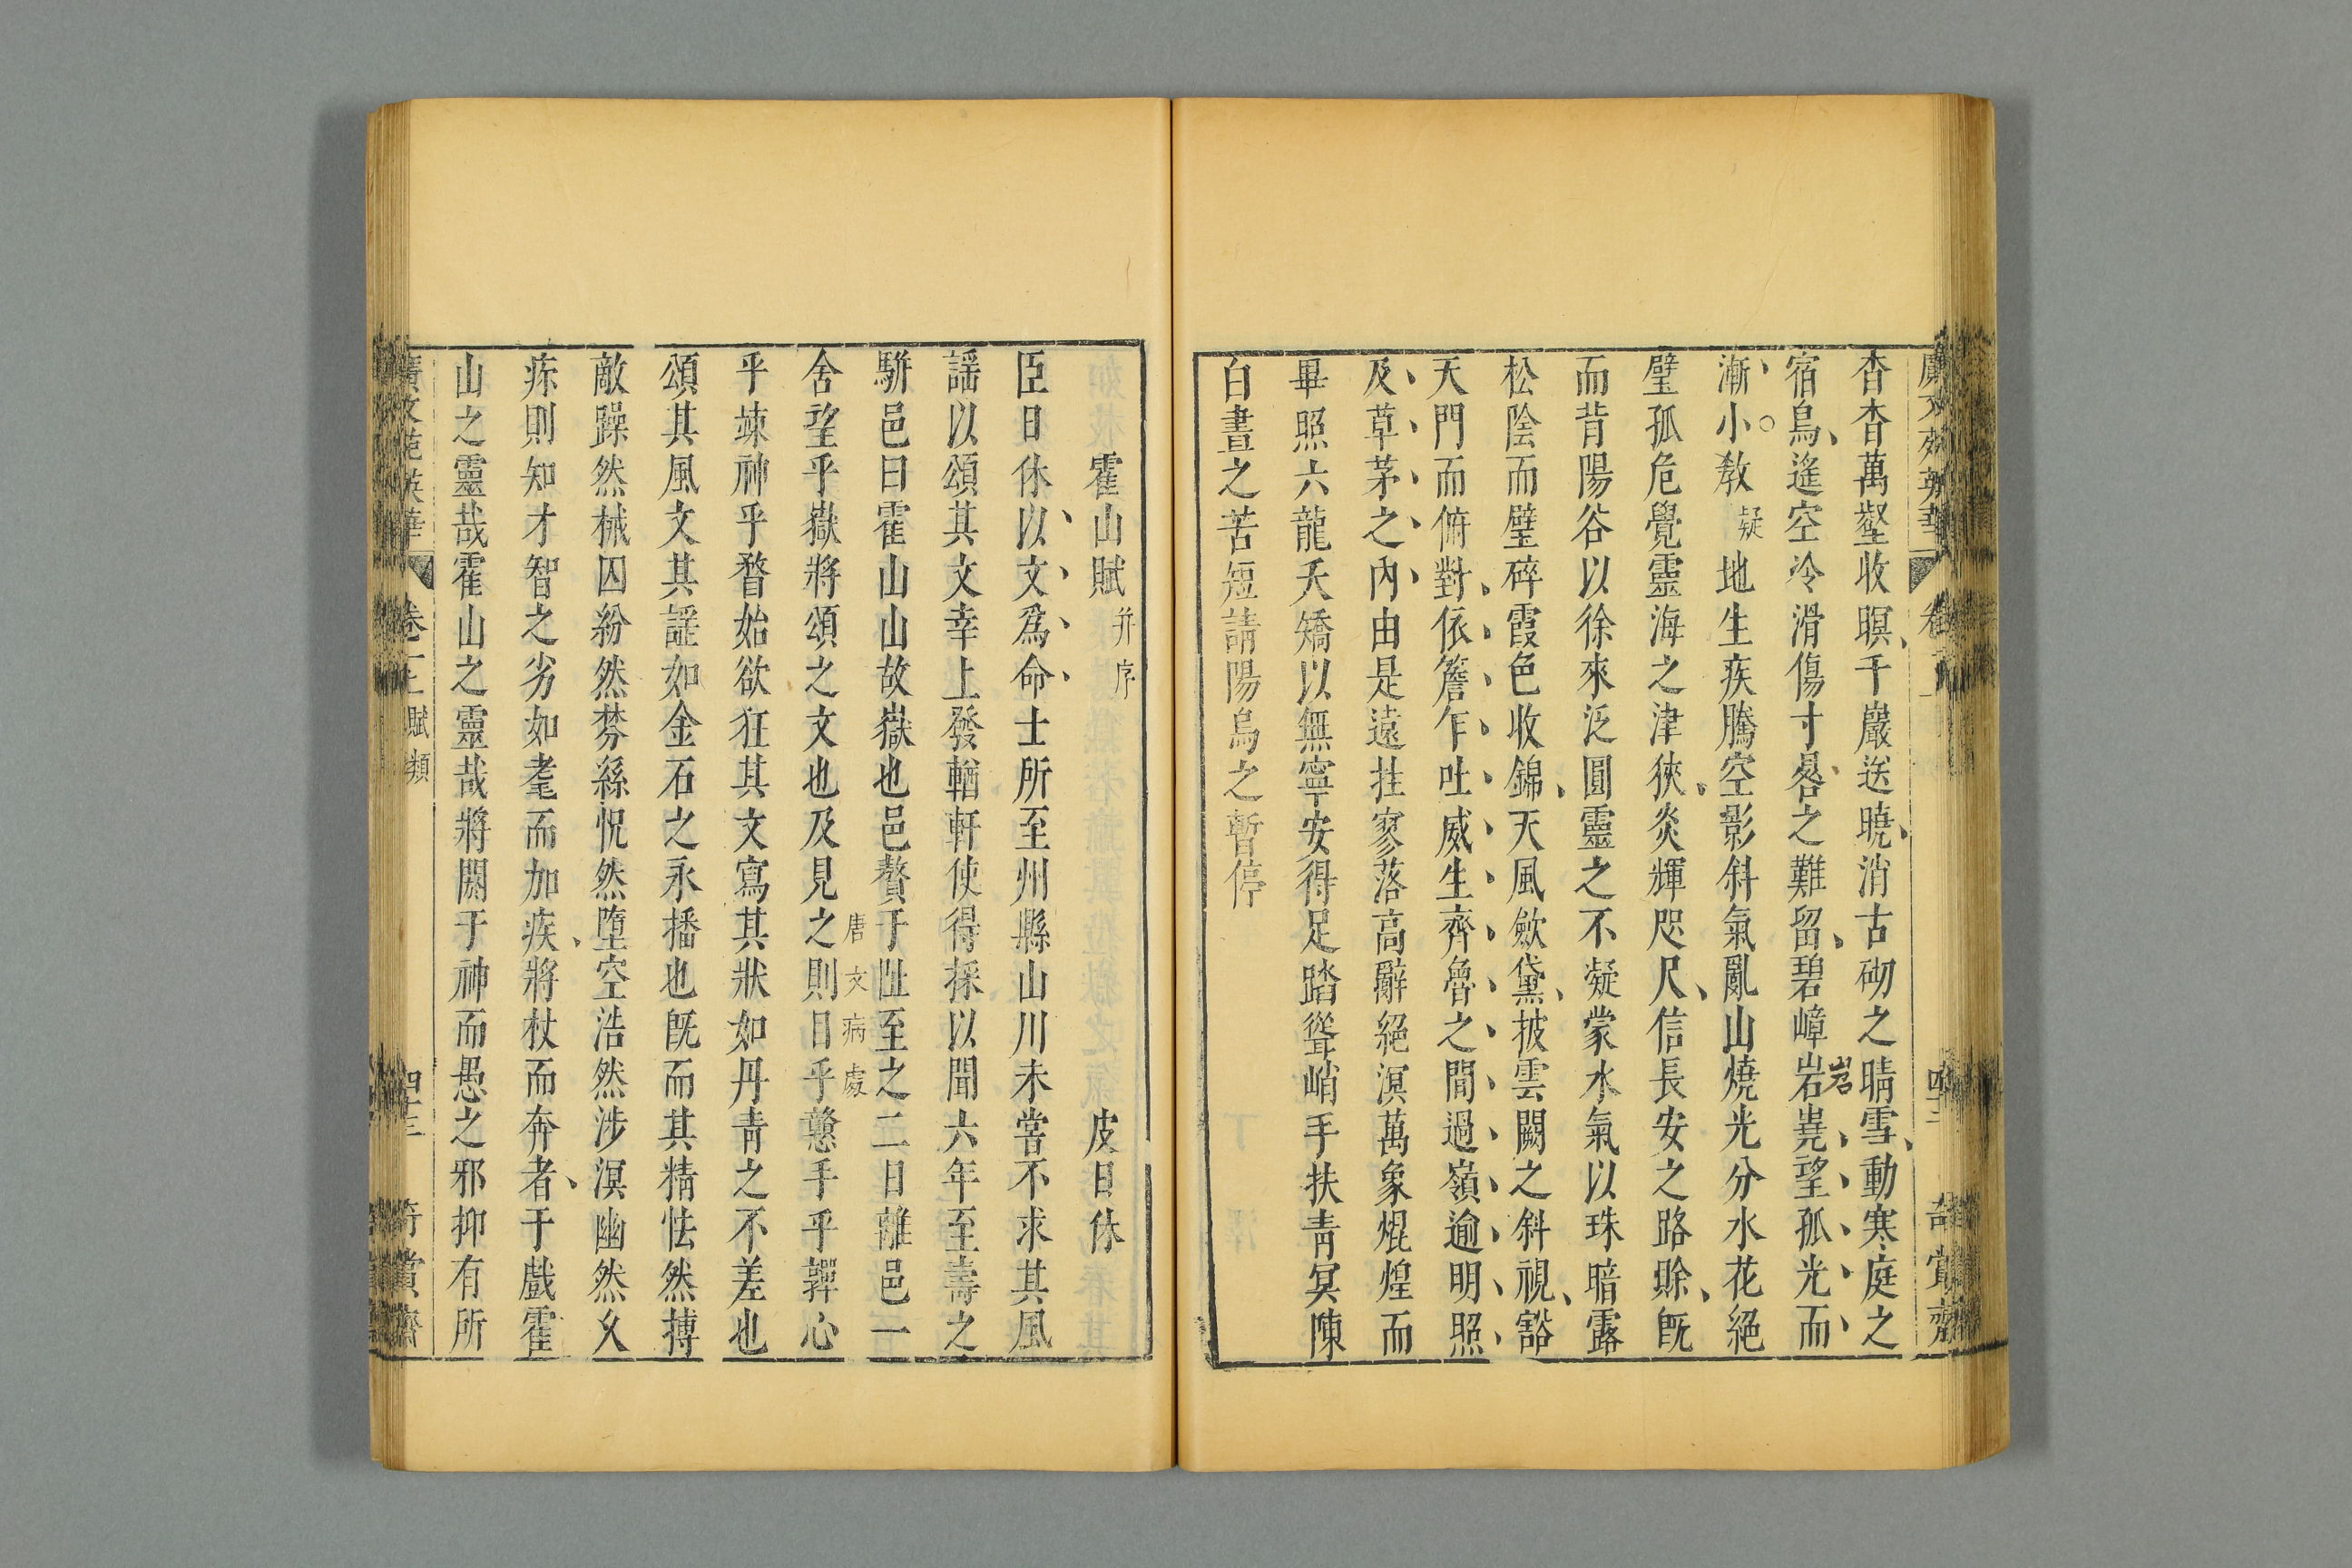 杳杳萬壑收暝千巖送曉消古砌之晴雪動寒庭之
宿鳥遙空冷滑傷寸晷之難留碧嶂岩嶤望孤光而
岧
漸小敎凝地生疾騰空影斜氣亂山燒光分水花絕
璧孤危覺靈海之津狹炎輝咫尺信長安之路賒旣
而背陽谷以徐來泛圓靈之不凝蒙水氣以珠暗露
松陰而璧碎霞色收錦天風歛黛披雲闕之斜視豁
天門而俯對依簷乍吐威生齊魯之間過嶺逾明照
及草茅之內由是遠挂寥落高辭絕溟萬象焜煌而
畢照六龍夭矯以無寧安得足踏聳峭手扶青冥陳
白晝之苦短請陽烏之暫停
霍山賦并序 皮日休
臣日休以文爲命士所至州縣山川未嘗不求其風
謡以頌其文幸上發輶軒使得採以聞六年至壽之
騈邑曰霍山山故嶽也邑贅于阯至之二日離邑一
唐文病處
舍望乎嶽將頌之文也及見之則目乎戇手乎韗心
乎竦神乎瞀始欲狂其文寫其狀如丹青之不差也
頌其風文其謡如金石之永播也旣而其精怯然搏
敵躁然械囚紛然棼絲怳然墮空浩然涉溟幽然久
疾則知才智之劣如耄而加疾將杖而奔者于戲霍
山之靈哉霍山之靈哉將閼于神而愚之邪抑有所
廣文苑英華 卷十三 賦類 四十三 奇賞齋